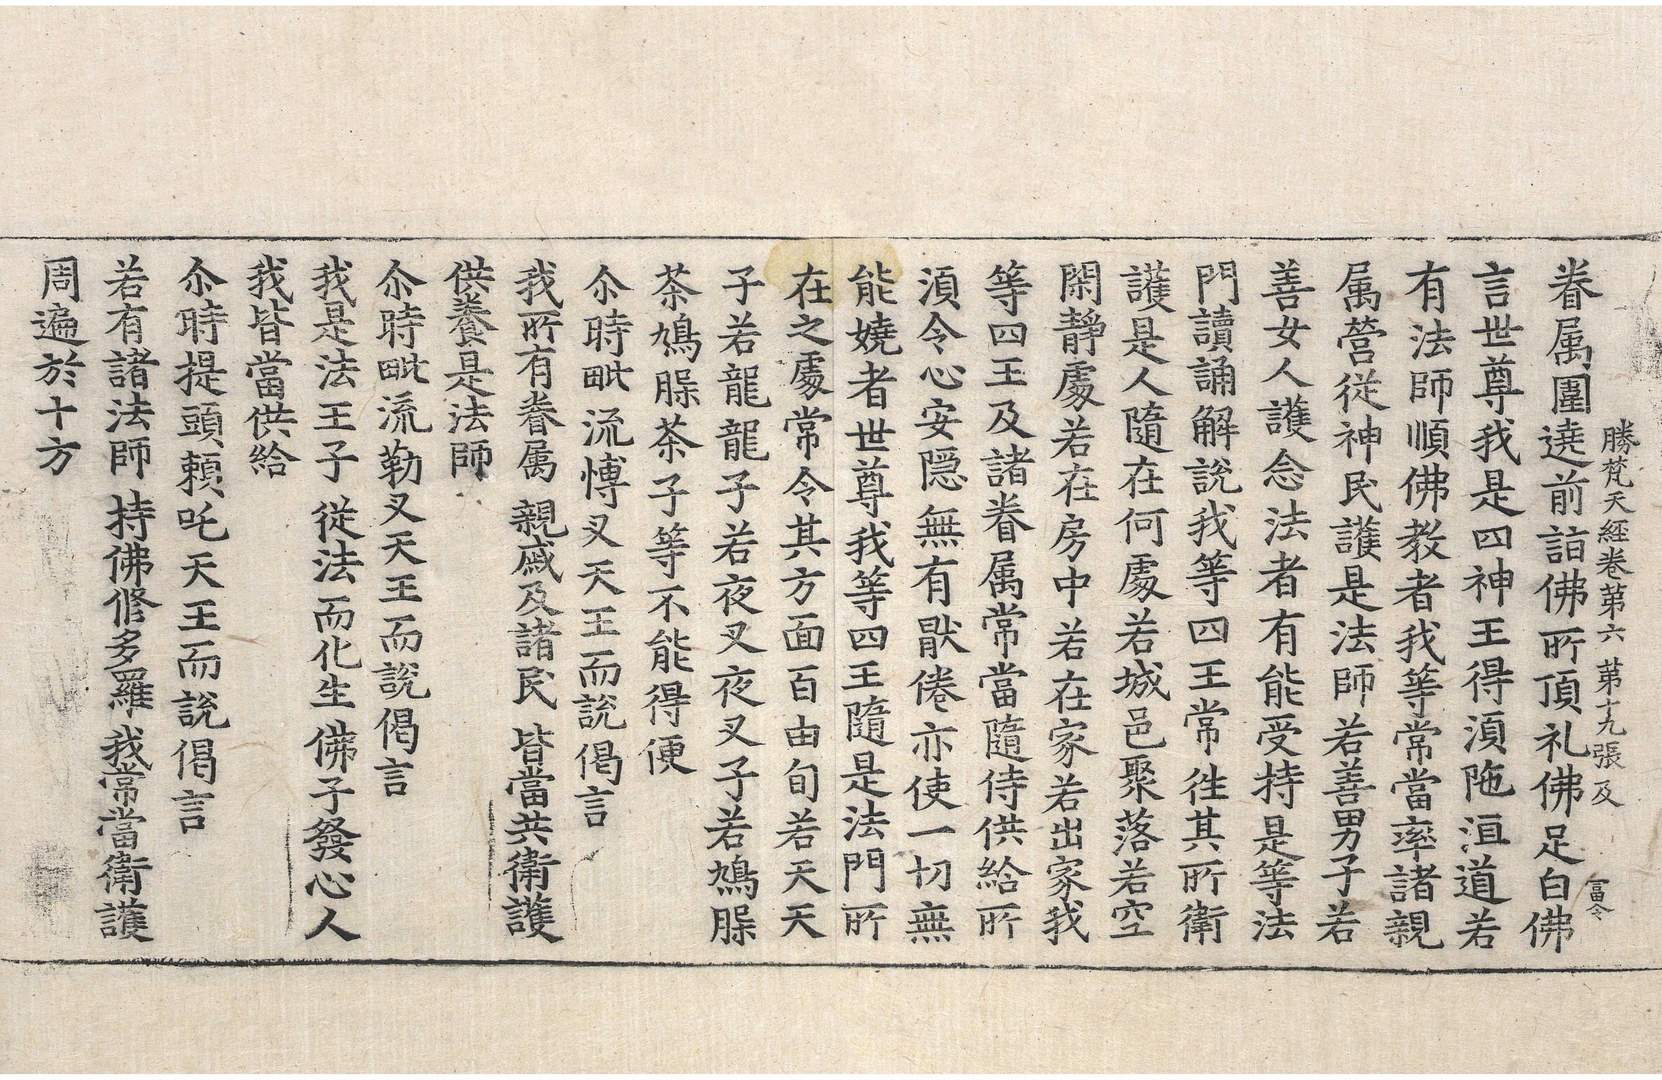 勝梵天經卷第六 第十九張 及
富令
眷属圍遶前詣佛所頂礼佛足白佛
言世尊我是四神王得湏陁洹道若
有法師順佛教者我等常當率諸親
属營従神民護是法師若善男子若
善女人護念法者有能受持是等法
門讀誦解説我等四王常徃其所衛
護是人隨在何處若城邑聚落若空
閑靜處若在房中若在家若出家我
等四王及諸眷属常當隨侍供給所
湏令心安隱無有猒倦亦使一切無
能嬈者世尊我等四王隨是法門所
在之處常令其方面百由旬若天天
子若龍龍子若夜叉夜叉子若鳩䐗
荼鳩䐗荼子等不能得便
尒時毗流愽叉天王而説偈言
我所有眷属 親戚及諸民 皆當共衛護
供養是法師
尒時毗流勒叉天王而説偈言
我是法王子 從法而化生 佛子發心人
我皆當供給
尒時提頭頼吒天王而説偈言
若有諸法師 持佛修多羅 我常當衛護
周遍於十方